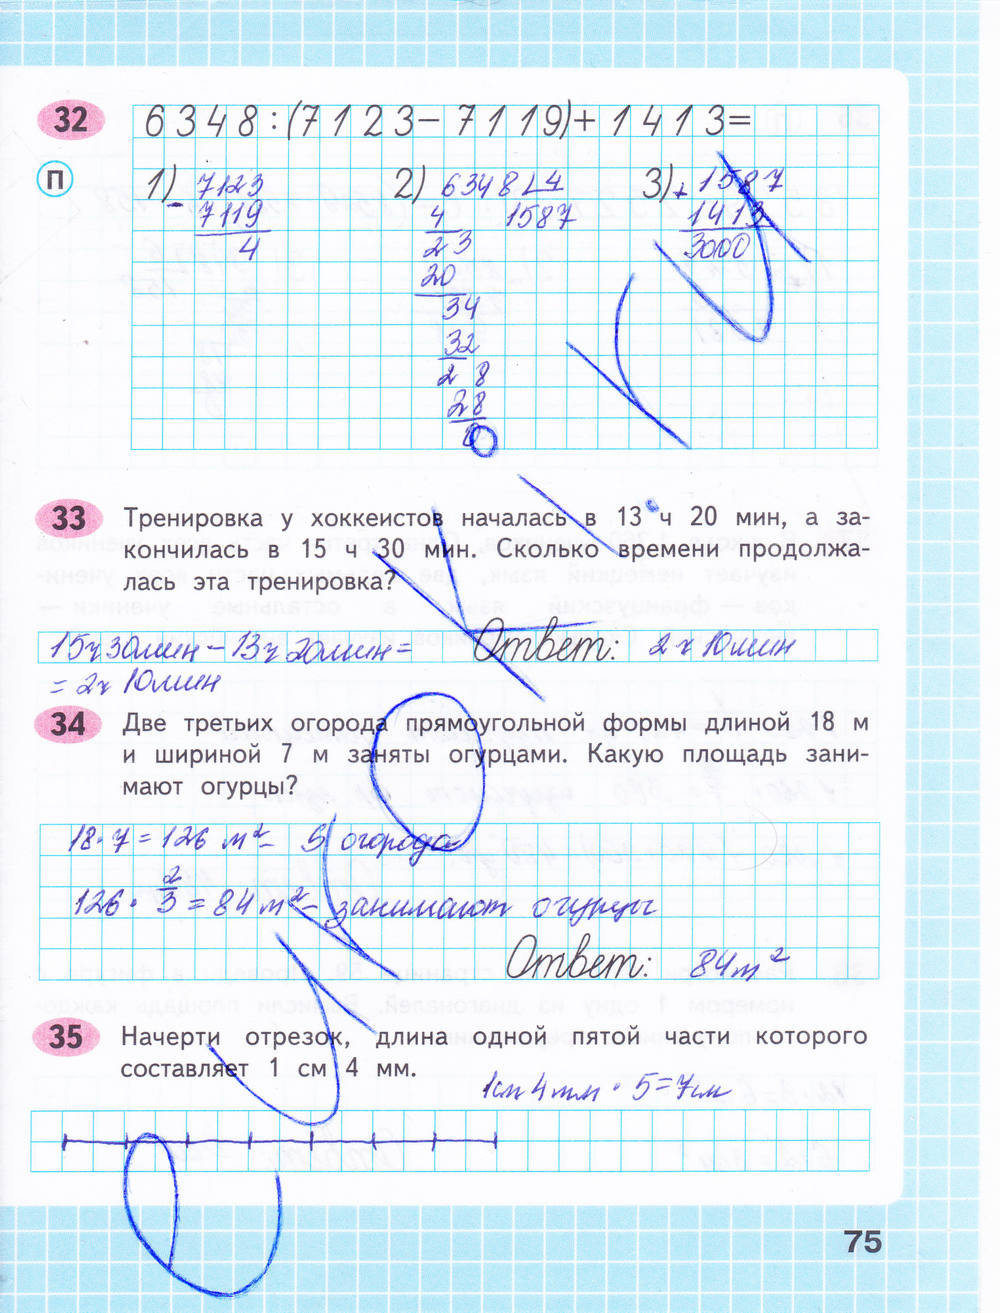 32 6348:(7123-7119)+1413=
П 1) 7123 2) 6348 4 3) + 1587
- 7119 4 1587 1413
4 23 3000
20
34
32
28
28
0
33 Тренировка у хоккеистов началась в 13 ч 20 мин, а за-
кончилась в 15 ч 30 мин. Сколько времени продолжа-
лась эта тренировка?
15ч30мин-13ч20мин= Ответ: 2ч10мин
=2ч10мин
34 Две третьих огорода прямоугольной формы длиной 18 м
и шириной 7 м заняты огурцами. Какую площадь зани-
мают огурцы?
18·7=126 м²- S огорода
126·2/3=84м²-занимают огурцы
Ответ: 84м²
35 Начерти отрезок, длина одной пятой части которого
составляет 1 см 4 мм.
1см4мм·5=7см
75